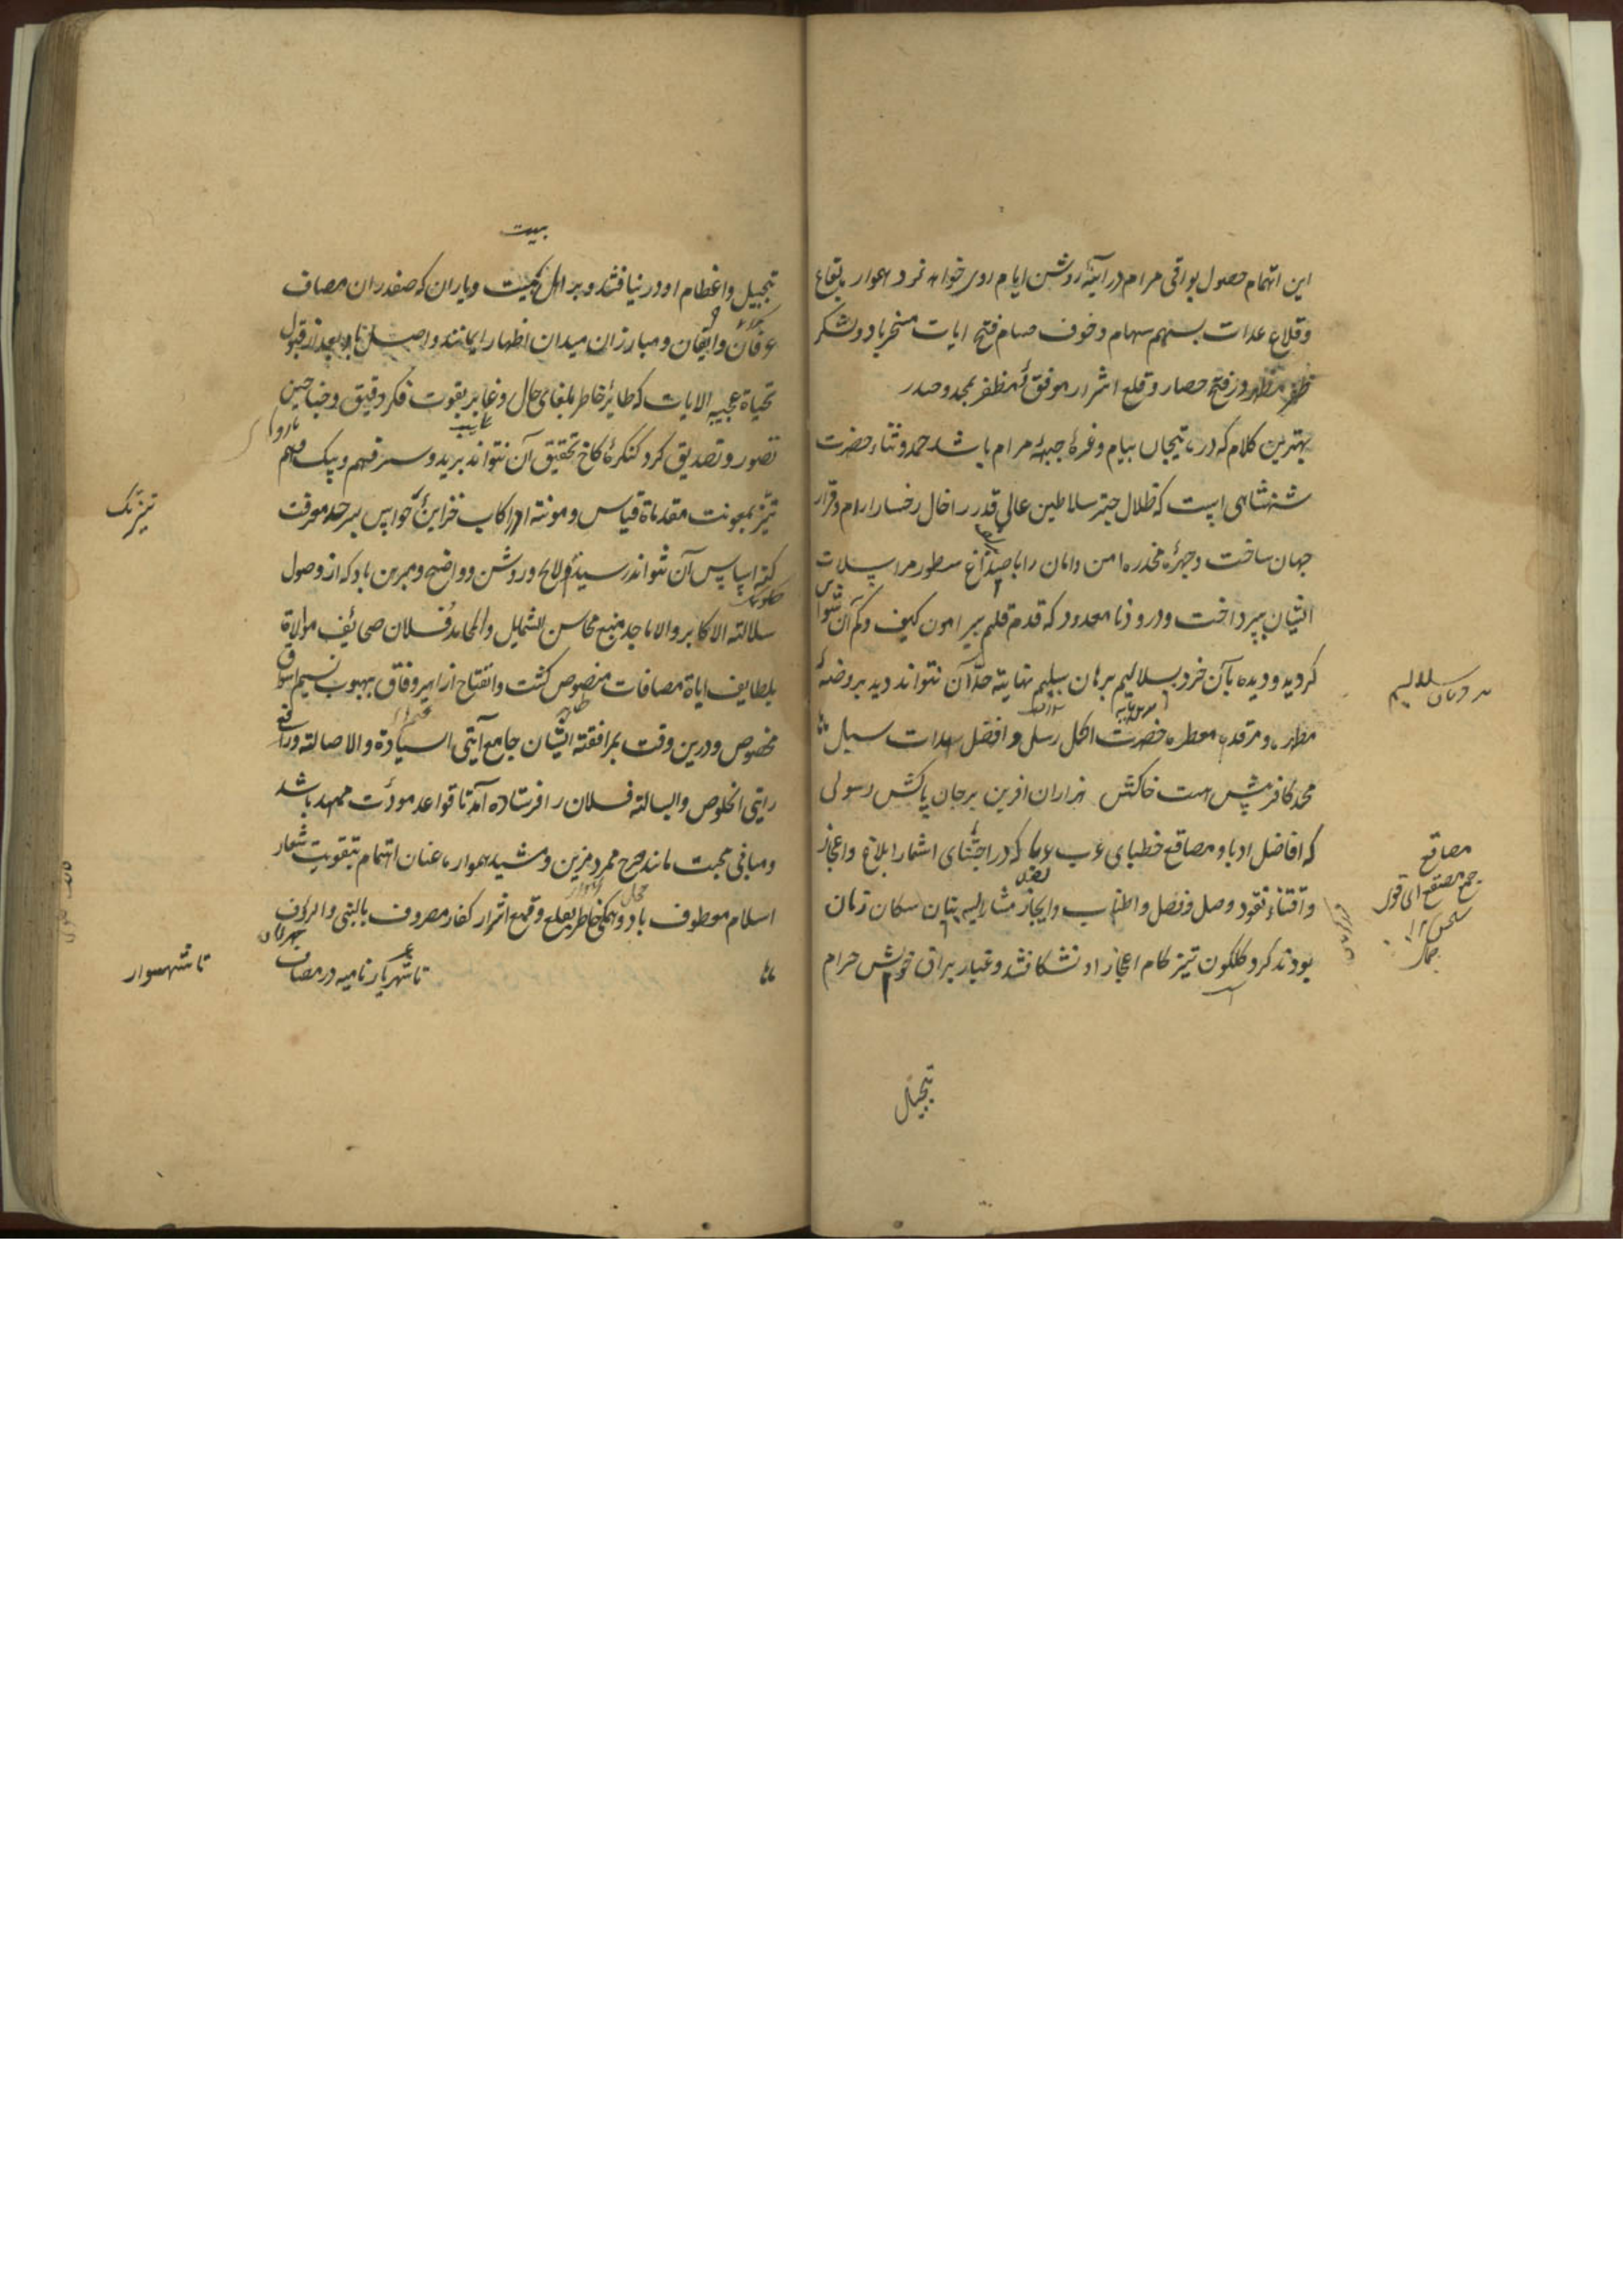 این اتهمام حصول بواقی مرام در آینهٔ روشن ایام روی خواهد نمود همواره بقاع
وقلاع عدات بسهم سهام وخوف صمام فتح ایات مسخر باد ولشکر
ظفر در فتح حصار وقلع اشرار موفق ومظفر بمجد وصدر
بهترین کلام که در تیجان پیام وغرهٔ جبههٔ مرام باشد حمد وثناء حضرت
شهنشاهی است که ظلال چتر سلاطین عالی قدر را خال رخسار ارام وقرار
جهان ساخت وچهرهٔ مخدره امن وامان را باصداغ سطور مراسلات
ایشان بپرداخت ودرود نامعدود که قدم قلم پیرامون کیف وکم آن نتواند
کردید ودیده بآن خرد بسلالیم برهان سلیم نهایة حد آن نتواند دید بر روضهٔ
مطهره ومرقد معطره حضرت اکمل رسل وافضل هدات سبل
محمد کافرینش هست خاکش هزاران افرین بر جان پاکش رسولی
که افاضل ادبا ومصاقع خطبای عرب عربا که در اجتنای اشمار ابلاغ واعجاز
واقتناء نقود وصل وفصل واطناب وایجاز مشار الیه بنان سکان زمان
بودند کرد کلکون تیز کام اعجاز او نشکافتند وغبار براق خوش خرام
سلالیم
مصاقع
جمع مصقع ای قول
تبجیل
بیت
تبجیل واعظام او در نیافتند وبر اهل بیت ویاران که صفدران مصاف
عرفان وایقان ومبارزان میدان اظهار ایمانند واصل باد بعد از قبول
تحیاة عجیبه الایات که طایر خاطر بلغای حال وغابر بقوت فکر دقیق وجناحین
تصور وتصدیق کرد کنکرهٔ کاخ تحقیق آن نتواند پرید وسر فهم وپیک وهم
تیز بمعونت مقدماة قیاس ومونت ادراکات خزاین حواس بسرحد معرفت
کنه اساس آن نتواند رسید لایح وروشن وواضح ومبرهن باد که از وصول
سلالة الاکابر والاماجد منبع محاسن الشمایل والمحامد فلان صحائف موالاة
بلطایف ایاة مصافات منصوص کشت وانفتاح ازاهیر وفاق بهبوب نسیم اشواق
مخصوص ودرین وقت بمرافقة ایشان جامع آیتی السیادة والاصالة ورافع
رایتی الخلوص والبسالة فلان را فرستاده آمد تا قواعد مودت ممهد باشد
ومبانی محبت مانند صرح ممرد مزین ومشید همواره عنان اهتمام بتقویت شعار
اسلام معطوف باد وهمکی خاطر بقلع وقمع اشرار کفار مصروف بالنبی والرؤف
تا شهریار نامیه در مصاف
تیزتک
تا شهسوار